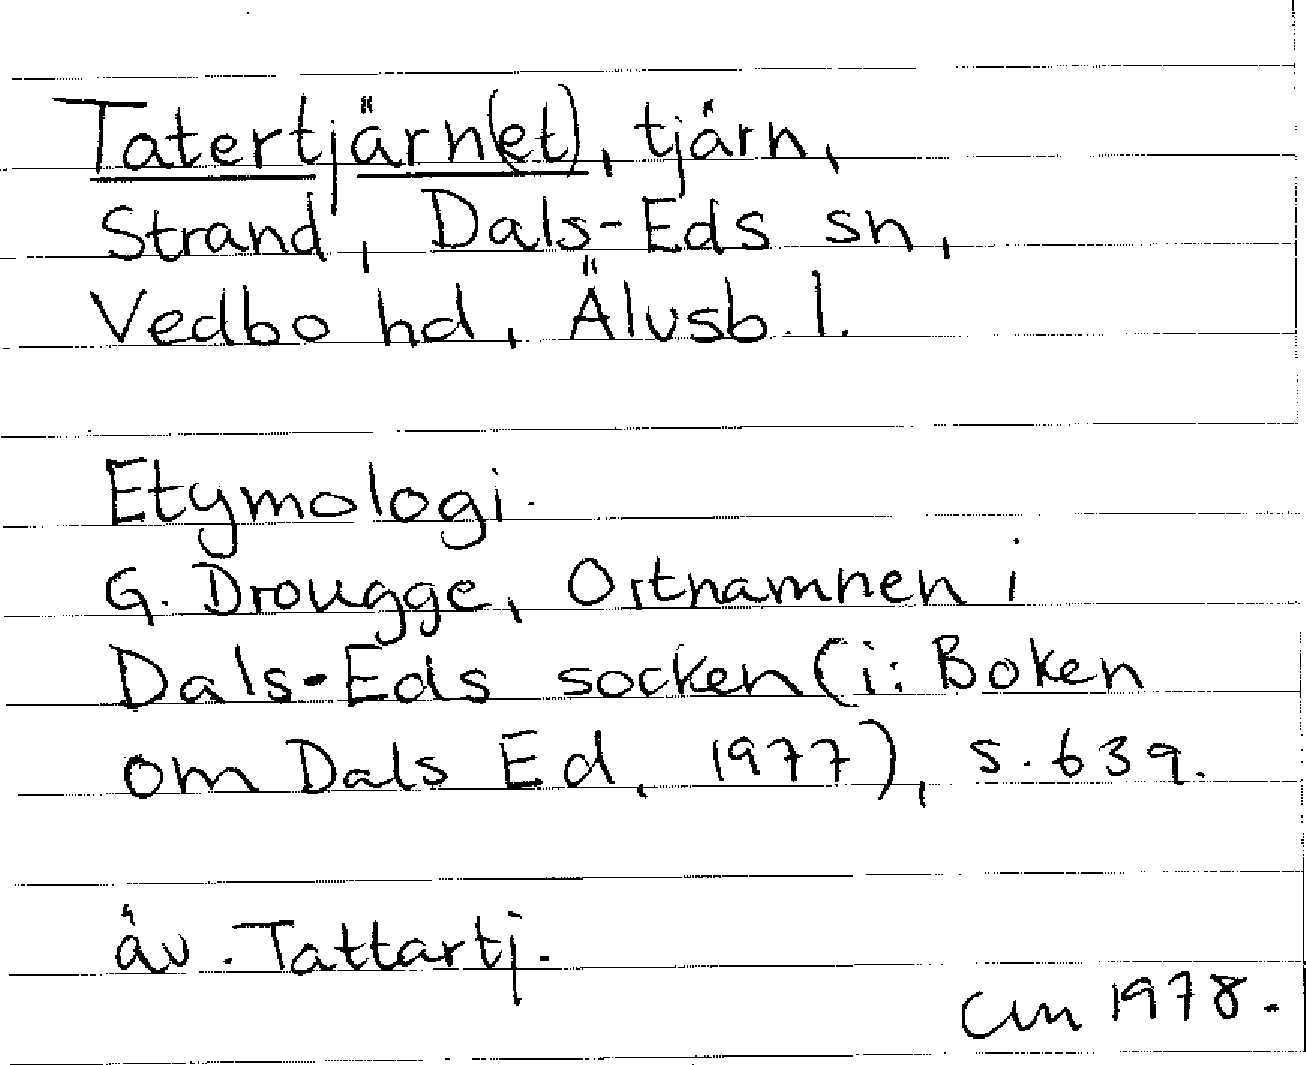 Tatertjärn(et), tjärn,
Strand, Dals-Eds sn,
Vedbo hd, Älvsb. l.
Etymologi.
G. Drougge, Ortnamnen i
Dals-Eds socken (i: Boken
om Dals Ed, 1977), s. 639.
äv. Tattartj.
1978.